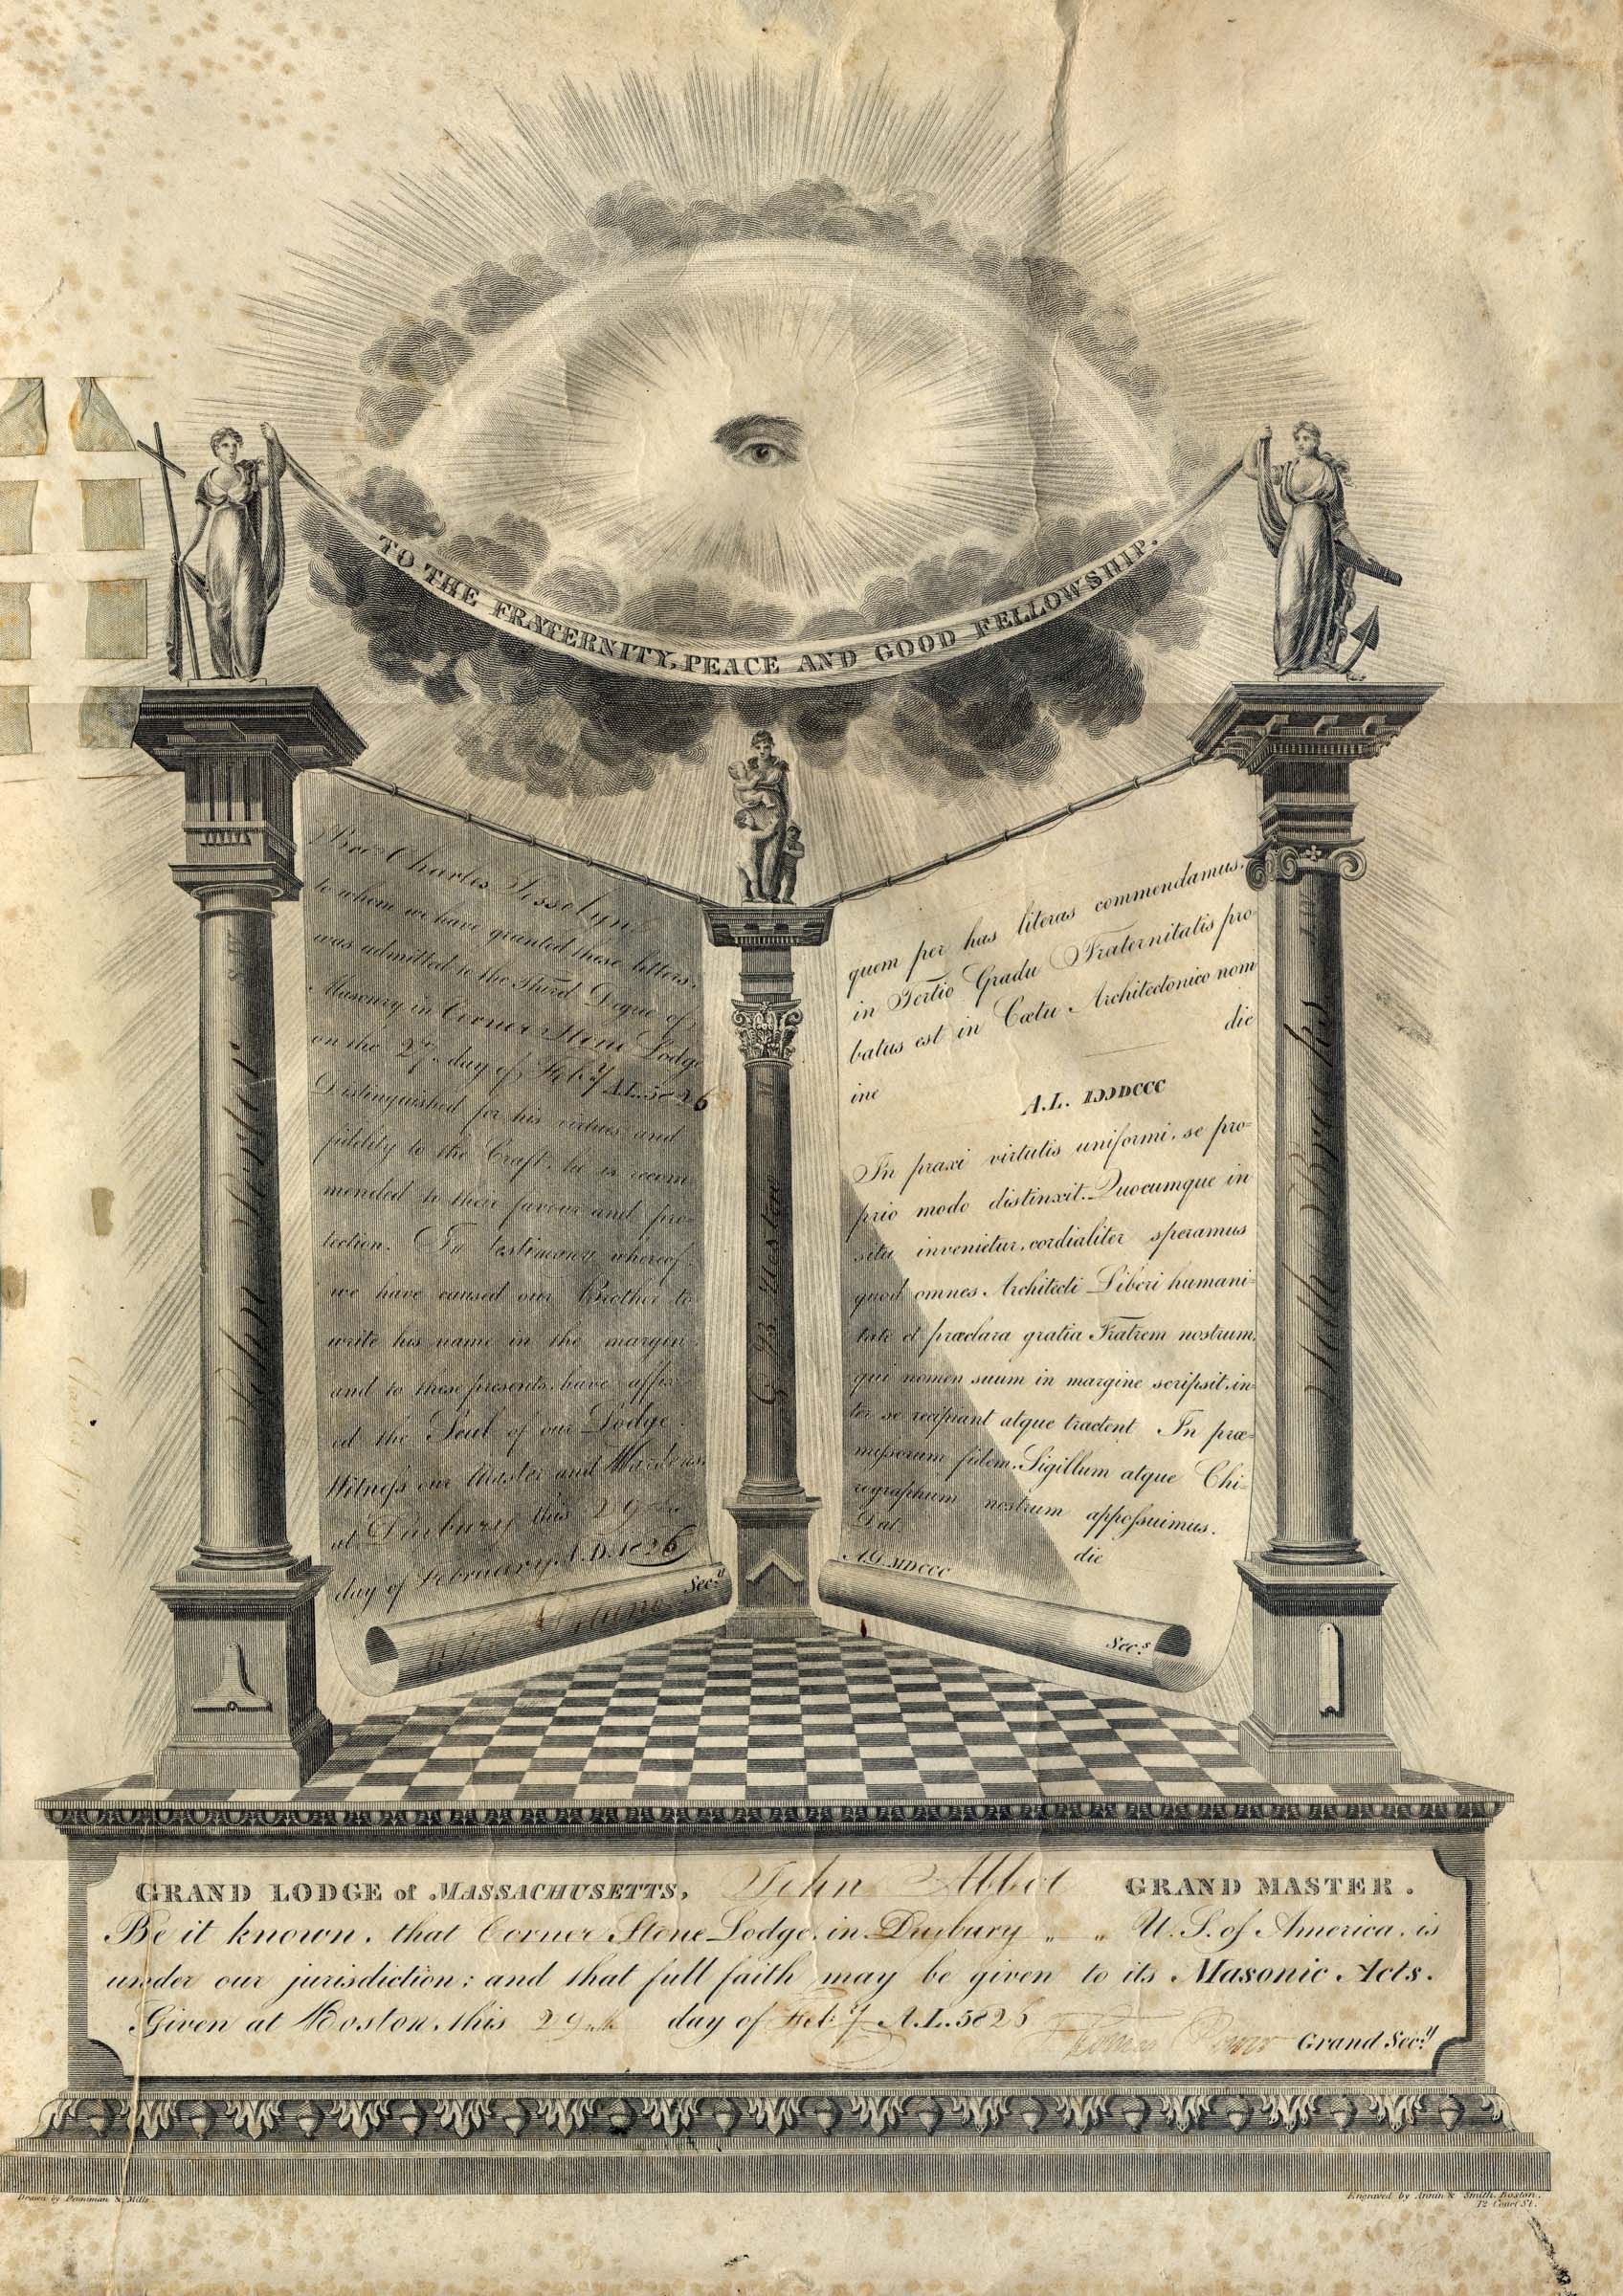 TO THE FRATERNITY, PEACE AND GOOD FELLOWSHIP.
Bro. Charles
to whom we have granted these letters,
was admitted to the Third Degree of
Masonry in Corner Stone Lodge
on the 27 day of Feby A.L. 5826
Distinguished for his virtues and
fidelity to the Craft, he is recom
mended to their favour and pro-
tection. In testimony whereof
we have caused our Brother to
write his name in the margin
and to these presents, have affix
ed the Seal of our Lodge.
Witness our Master and Wardens
at Duxbury this 29th
day of February A.D. 1826
Secy
quem per has literas commendamus.
in Tertio Gradu Fraternitatis pro-
batus est in Cœtu Architectonico nom
ine die
A.L. IƆƆƆDCCC
In praxi virtutis uniformi, se pro-
prio modo distinxit. Quocumque in
situ invenietur, cordialiter speramus
quod omnes Architecti Liberi humani-
tate et præclara gratia Fratrem nostrum,
qui nomen suum in margine scripsit, in-
ter se recipiant atque tractent In præ-
missorum fidem, Sigillum atque Chi-
rographum nostrum appossuimus.
Dat. die
A.D. MDCCC
Secs
S.W.
J.W.
M
GRAND LODGE of MASSACHUSETTS, John Abbot GRAND MASTER.
Be it known, that Corner Stone Lodge, in Duxbury „ „ U.S. of America, is
under our jurisdiction; and that full faith may be given to its Masonic Acts.
Given at Boston, this 29th day of Feby A.L. 5826 Thomas Power Grand Secy
Drawn by Penniman & Mills.
Engraved by Annin & Smith, Boston.
72 Court St.